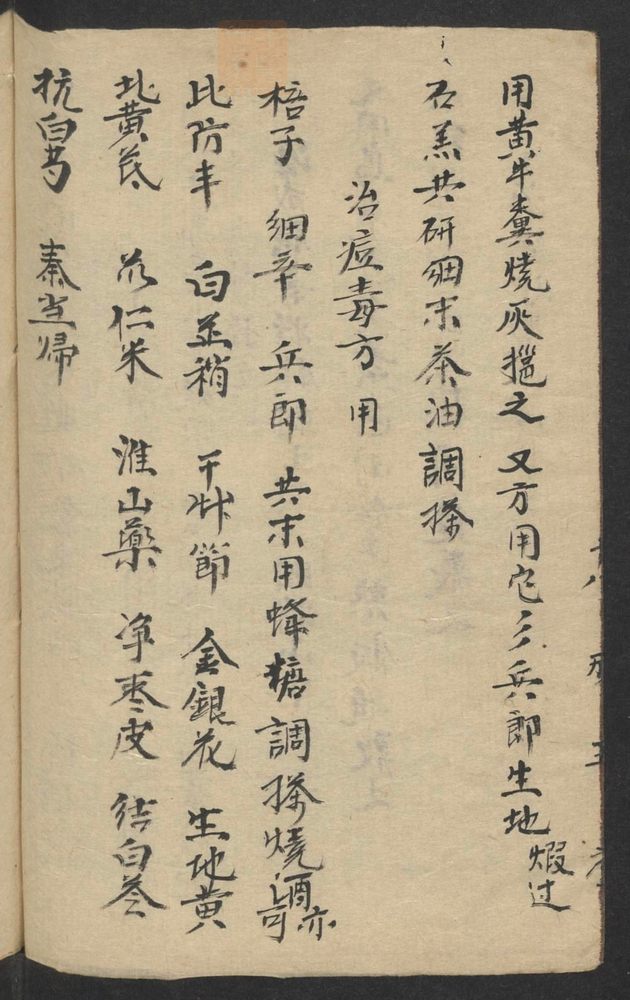 用黄牛糞燒灰搵之 又方用皂彡兵郎生地煆过
石羔共研細末茶油調搽
治痘毒方 用
梧子 細辛 兵郎 共末用蜂糖調搽燒酒亦可
北防丰 白芷稍 干艸節 金銀花 生地黄
北黄芪 苡仁米 淮山藥 净枣皮 结白苓
抗白芍 秦当归